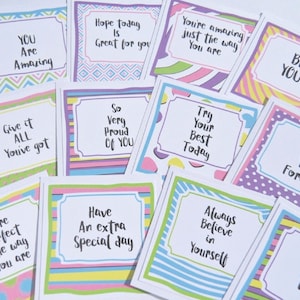 YOU
Are
Amazing
Hope today
Is
Great for you
You're amazing
Just the way
You are
B
YOU
Give it
ALL
Youve got
So
Very
Proud
OF YOU
Try
Your
Best
Today
For
the way
you are
Have
An extra
Special day
Always
Believe
in
Yourself